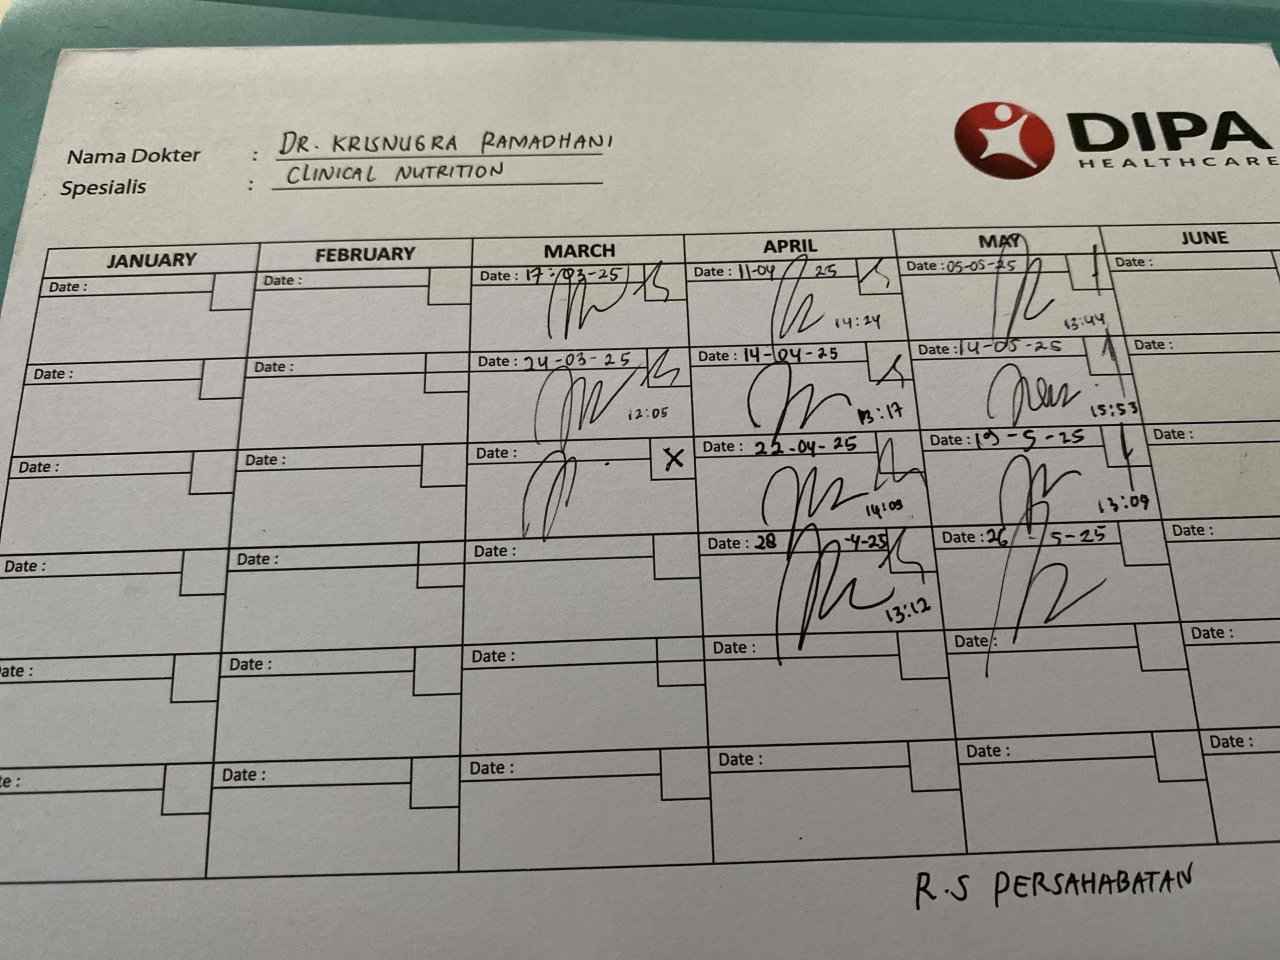 DIPA
HEALTHCARE
Nama Dokter : DR. KRISNUGRA RAMADHANI
Spesialis : CLINICAL NUTRITION
JANUARY FEBRUARY MARCH APRIL MAY JUNE
Date : Date : Date : 17-03-25 Date : 11-04 25 Date : 05-05-25 Date :
14:24 13:44
Date : Date : Date : 24-03-25 Date : 14-04-25 Date : 14-05-25 Date :
12:05 13:17 15:53
Date : Date : Date : X Date : 22-04-25 Date : 19-5-25 Date :
14:09 13:09
Date : Date : Date : Date : 28 -4-25 Date : 26 - 5-25 Date :
13:12
ate : Date : Date : Date : Date : Date :
te : Date : Date : Date : Date : Date :
R.S PERSAHABATAN